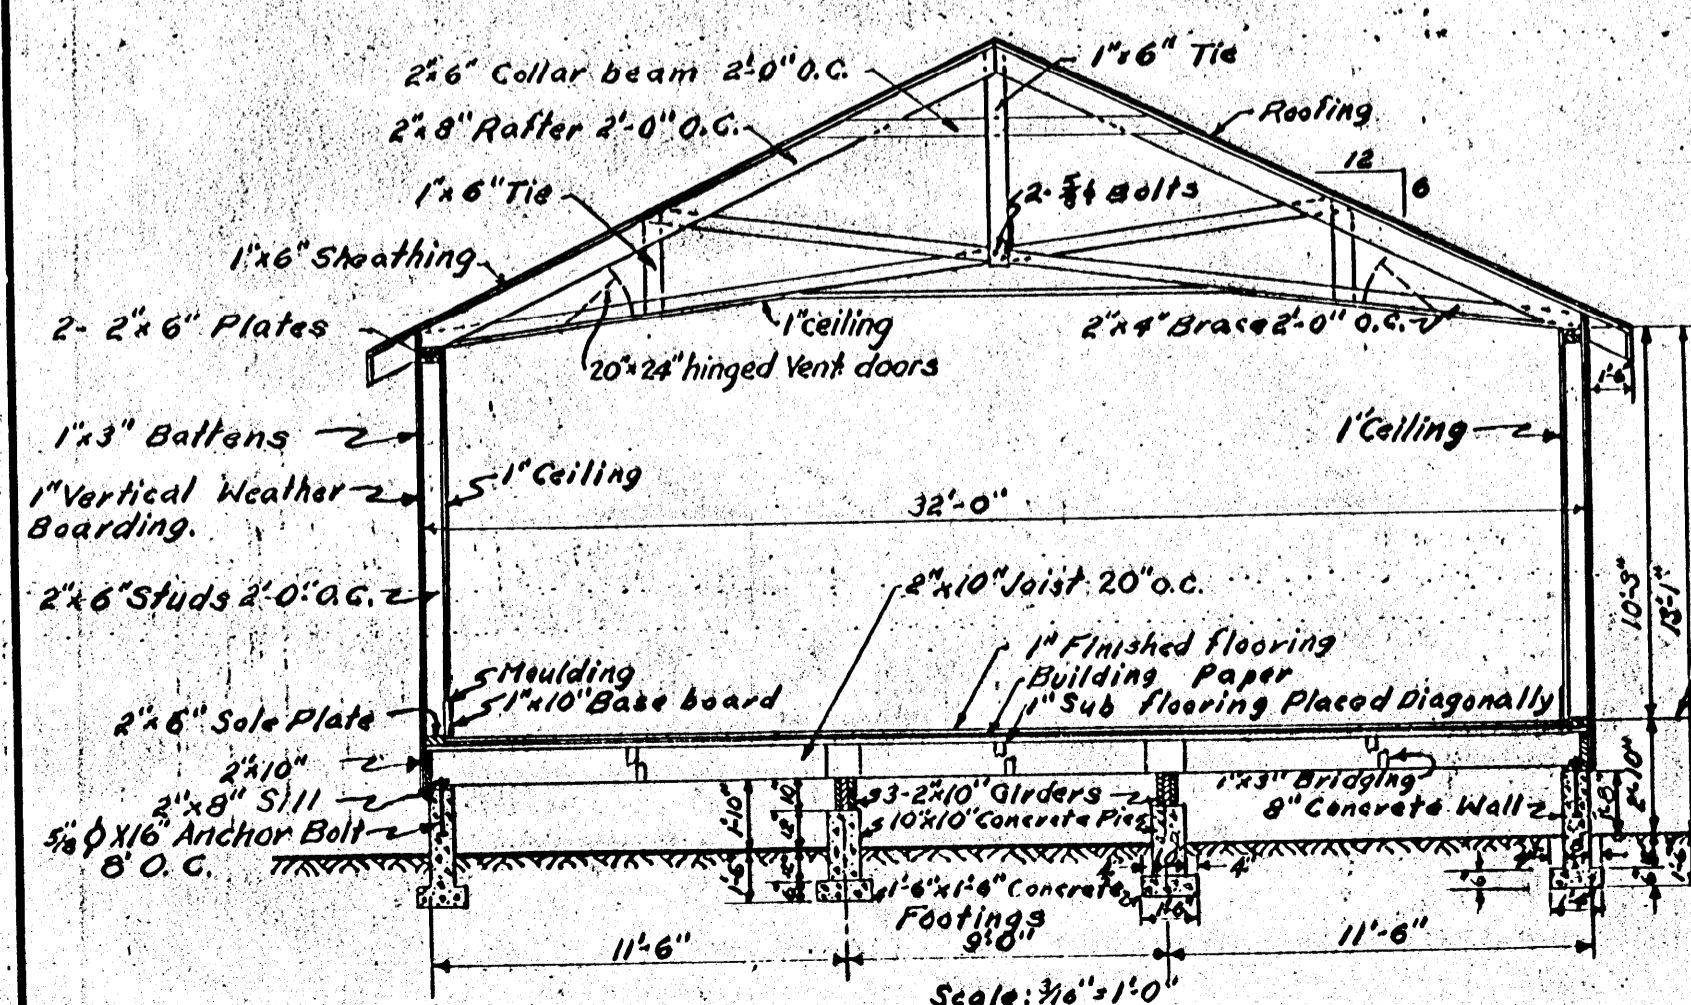 2"x6" Collar beam 2'-0" O.C.
1"x6" Tie
2"x8" Rafter 2'-0" O.C.
Roofing
12
6
1"x6" Tie
2-⅝ϕ Bolts
1"x6" Sheathing
2- 2"x6" Plates
1"ceiling
2"x4" Brace 2'-0" O.C.
20"x24" hinged Vent doors
1'-6"
1"x3" Battens
1"Ceiling
1" Vertical Weather
Boarding.
1" Ceiling
32'-0"
2"x6" Studs 2'-0" O.C.
2"x10" Joist 20" o.c.
10'-3"
13'-1"
1" Finished flooring
Building Paper
1" Sub flooring Placed Diagonally
Moulding
1"x10" Base board
2"x6" Sole Plate
2"x10"
2"x8" Sill
5/8 ϕ x16" Anchor Bolt
8' O.C.
1'-10"
10"
12"
3-2"x10" Girders
10"x10" Concrete Pier
1"x3" Bridging
8" Concrete Wall
1'-8"
2'-10"
1'-6"
12"
6"
4"
4"
1'-6"x1'-6" Concrete
Footings
1'-6"
6"
6"
1'-6"
11'-6"
9'-0"
11'-6"
Scale: 3/16" = 1'-0"